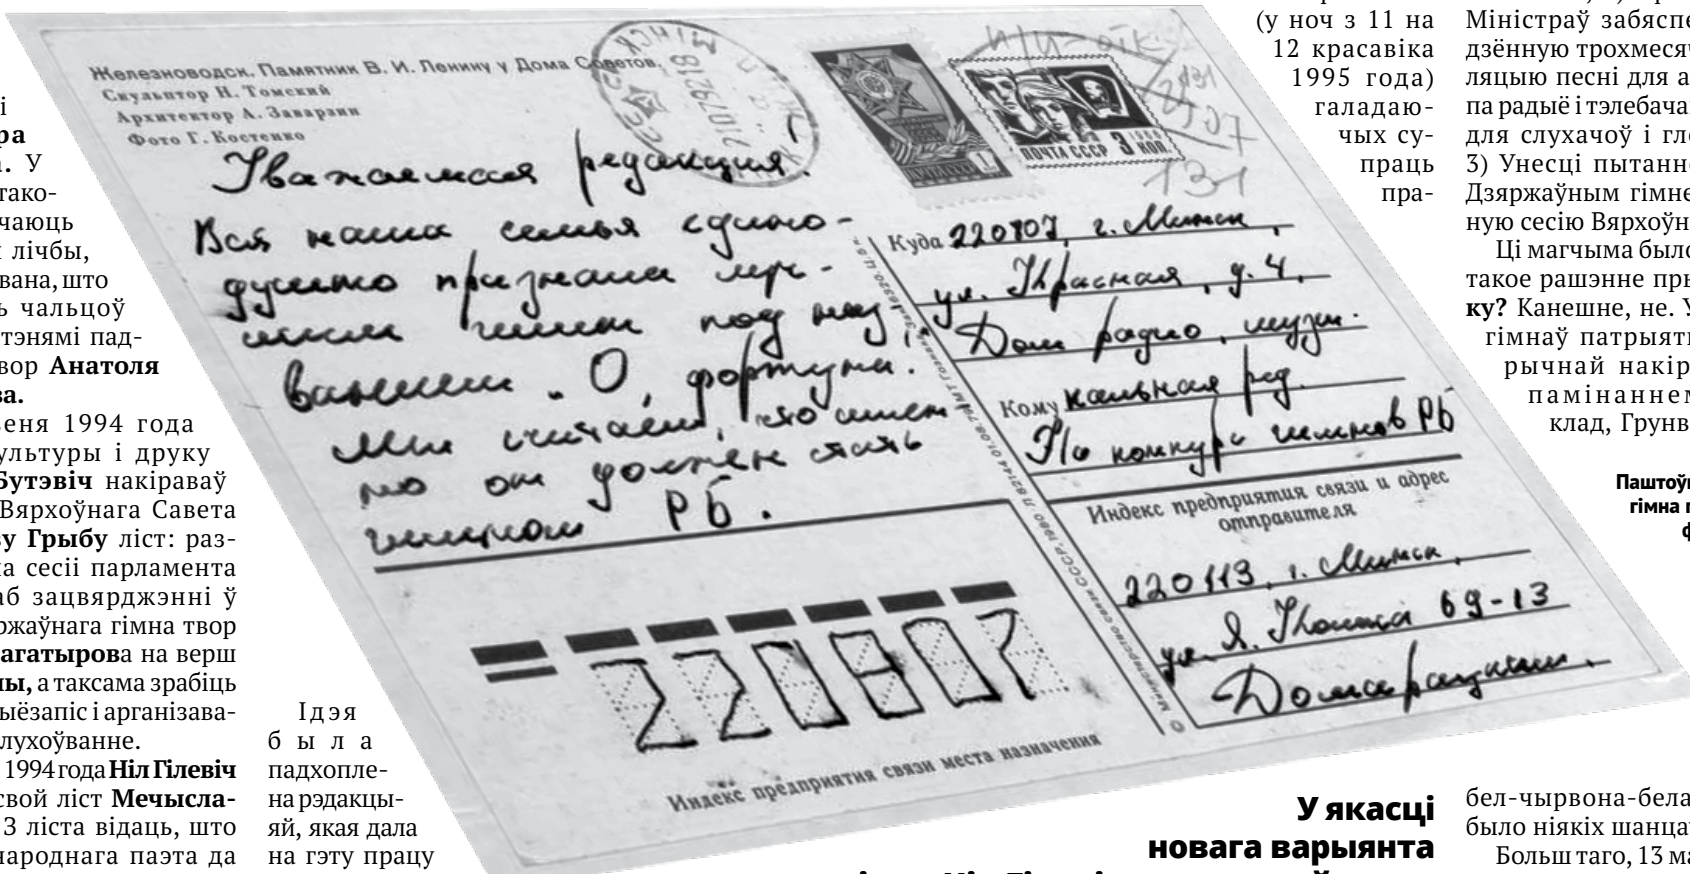 і
ра
У
тако-
чаюць
лічбы,
вана, што
ь чальцоў
тэнямі пад-
вор Анатоля
ва.
веня 1994 года
ультуры і друку
Бутэвіч накіраваў
Вярхоўнага Савета
ву Грыбу ліст: раз-
на сесіі парламента
аб зацвярджэнні ў
ржаўнага гімна твор
агатырова на верш
ны, а таксама зрабіць
ыёзапіс і арганізава-
лухоўванне.
1994 года Ніл Гілевіч
свой ліст Мечысла-
З ліста відаць, што
народнага паэта да
Ідэя
была
падхопле-
на рэдакцы-
яй, якая дала
на гэту працу
Железноводск. Памятник В. И. Ленину у Дома Советов.
Скульптор Н. Томский
Архитектор А. Заварзин
Фото Г. Костенко
МИНСК
ПОЧТА СССР 3 КОП.
1966
131
131
Уважаемая редакция!
Вся наша семья едино-
душно признала луч-
шим гимн под наз
ванием „О, фортуна".
Мы считаем, что имен
но он должен стать
гимном РБ.
Куда 220807, г. Минск,
ул. Красная, д. 4,
Дом радио, музы-
Кому кальная ред.
На конкурс гимнов РБ
Индекс предприятия связи и адрес
отправителя
220113, г. Минск,
ул. Я. Коласа 69-13
220807
Индекс предприятия связи места назначения
© Министерство связи СССР. 1980
(у ноч з 11 на
12 красавіка
1995 года)
галадаю-
чых су-
праць
пра-
Міністраў забяспе
дзённую трохмесяч
ляцыю песні для а
па радыё і тэлебача
для слухачоў і гле
3) Унесці пытанне
Дзяржаўным гімне
ную сесію Вярхоўн
Ці магчыма было
такое рашэнне пры
ку? Канешне, не. У
гімнаў патрыяты
рычнай накір
памінаннем
клад, Грунв
Паштоўк
гімна п
ф
У якасці
новага варыянта
бел-чырвона-бела
было ніякіх шанцаў
Больш таго, 13 ма